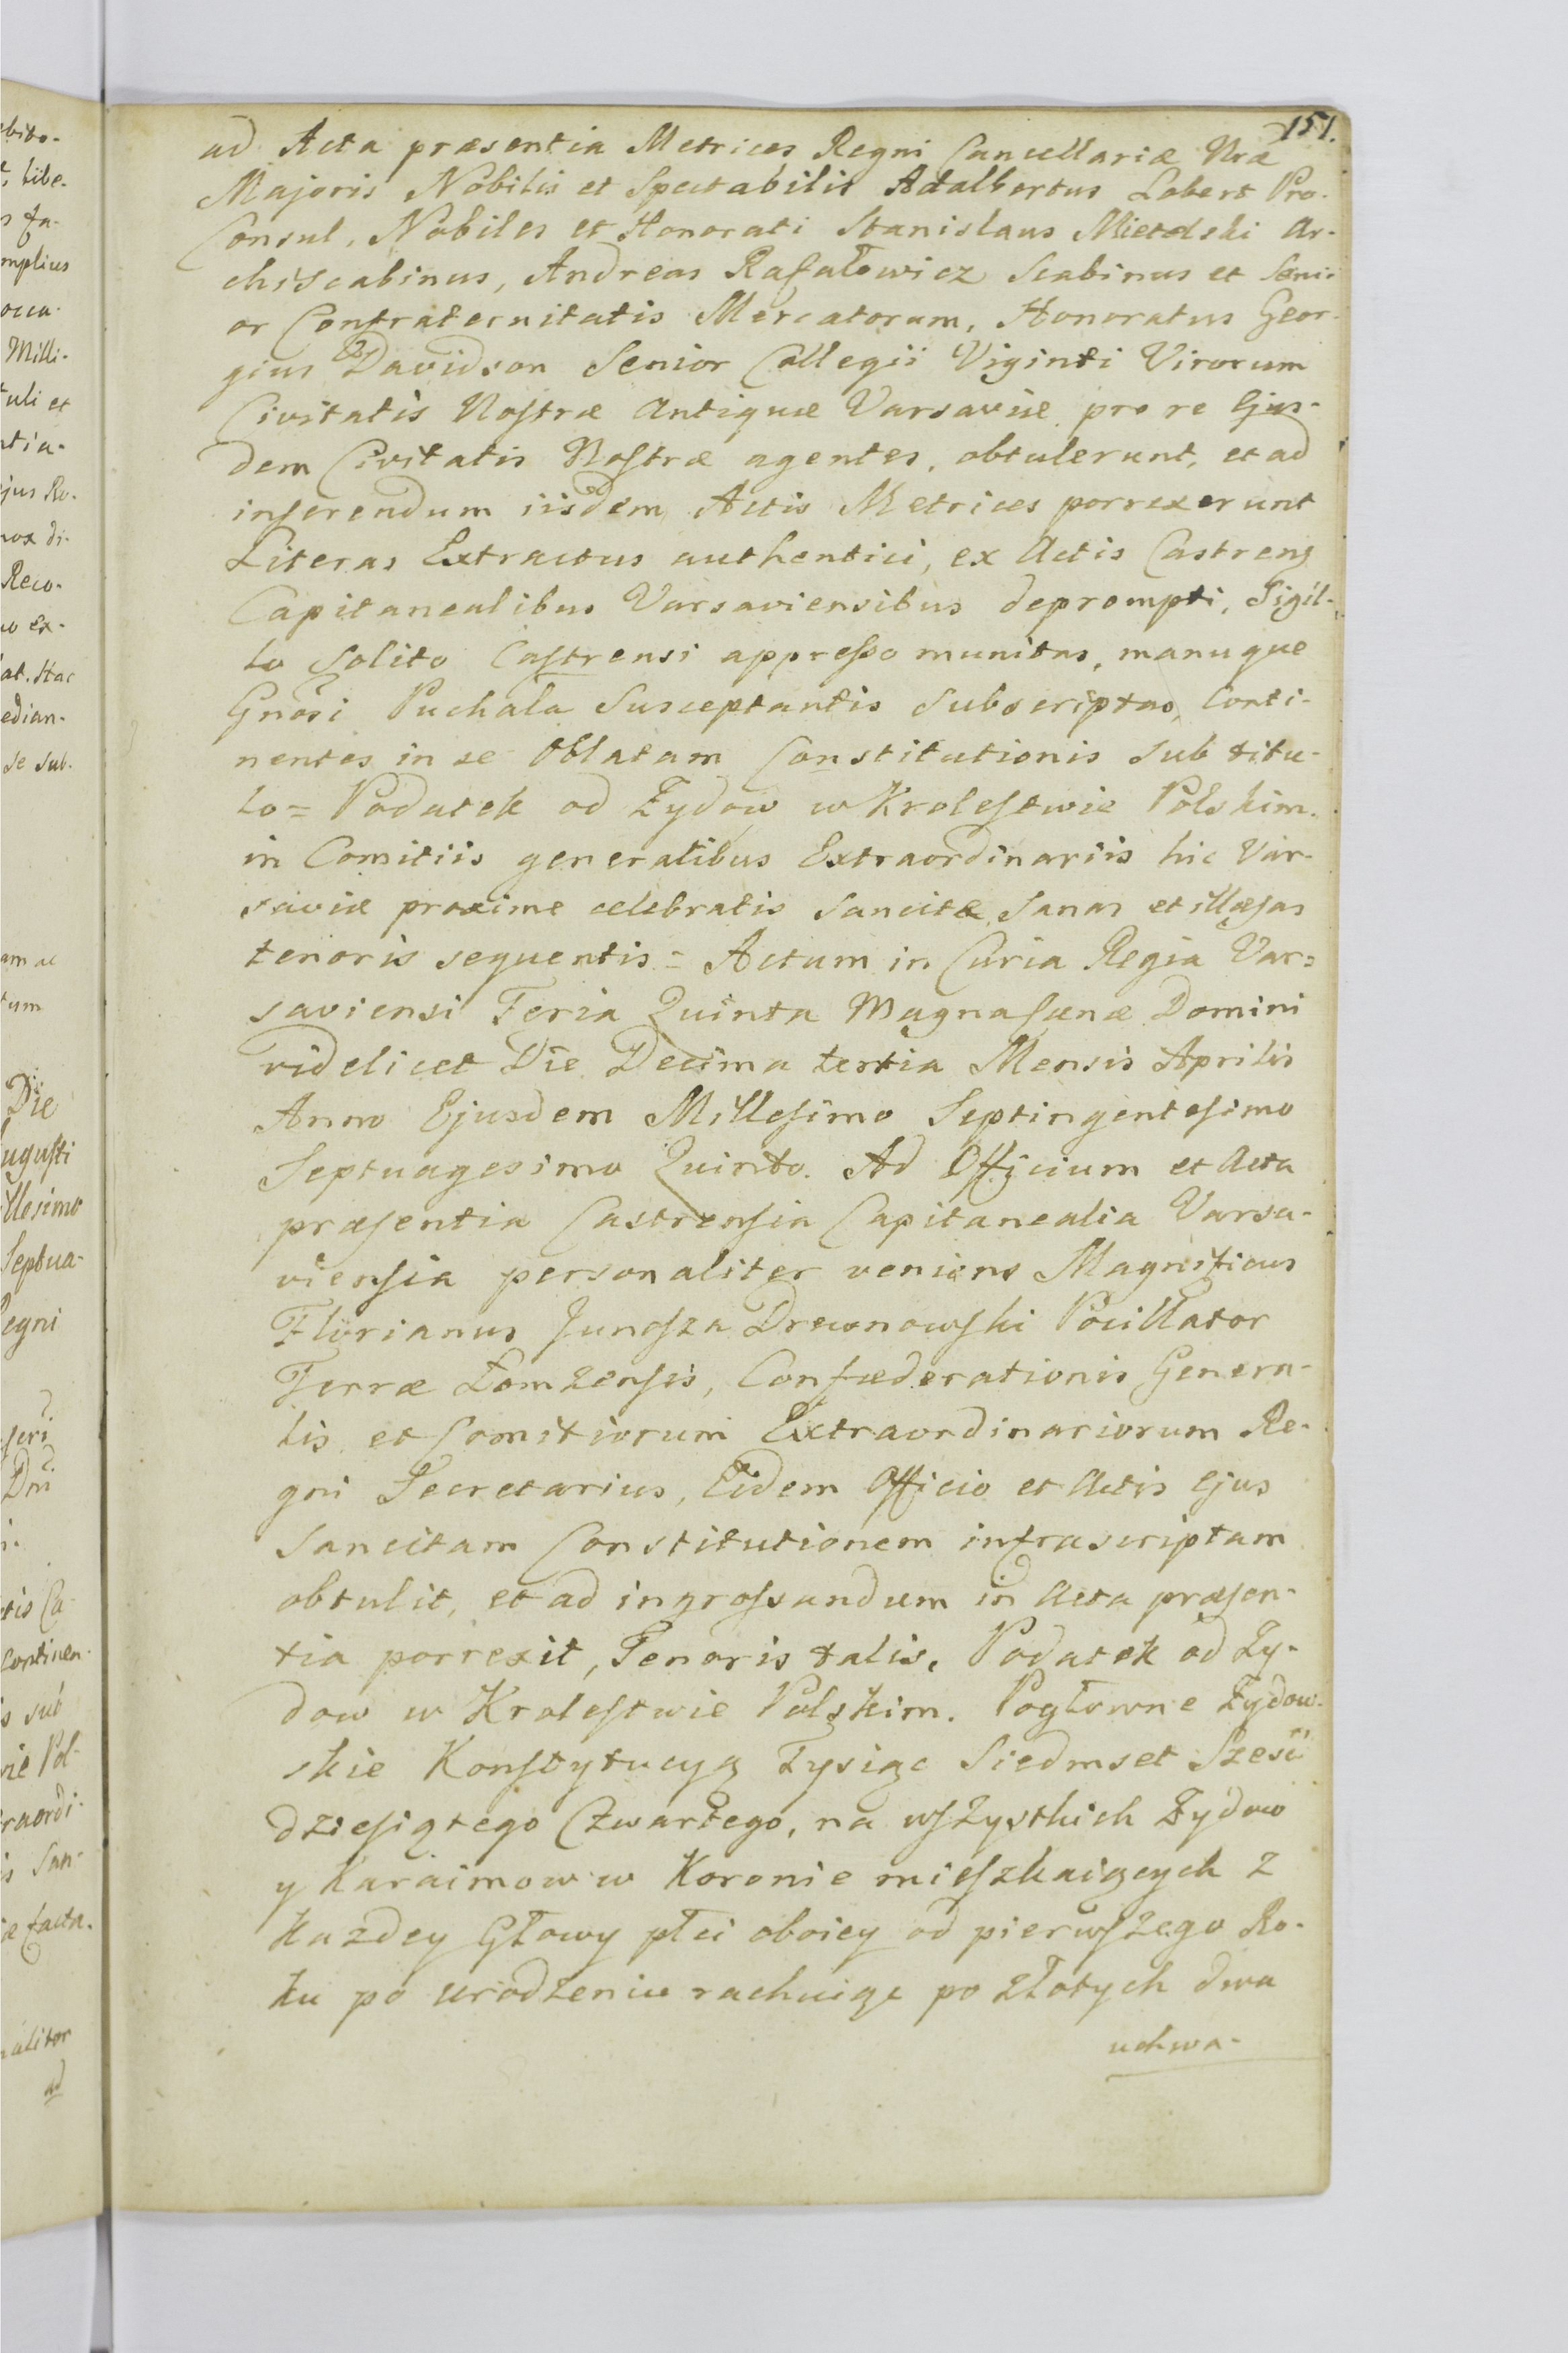 151.
ad Acta præsentia Metrices Regni Cancellariæ Nræ
Majoris Nobilis et Spectabilis Adalbertus Lobert Pro-
Consul, Nobiles et Honorati Stanislaus Ar-
chiscabinus, Andreas Rafałowicz Scabinus et Seni-
or Confraternitatis Mercatorum, Honoratus Geor-
gius Davidson Senior Collegii Viginti Virorum
Civitatis Nostræ Antiquæ Varsaviæ pro re Ejus-
dem Civitatis Nostræ agentes, obtulerunt, et ad
inserendum iisdem Actis Metrices porrexerunt
Literas Extractus authentici, ex Actis Castrens
Capitanealibus Varsaviensibus deprompti, Sigil-
lo Solito Castrensi appresso munitas, manuque
Gnosi Puchała Susceptantis Subscriptas, Conti-
nentes in se Oblatam Constitutionis sub titu-
lo = Podatek od Żydow w Krolestwie Polskim.
in Comitiis generalibus Extraordinariis hic Var-
saviæ proxime celebratis sancitæ, sanas et illæsas
tenoris sequentis = Actum in Curia Regia Var=
saviensi Feria Quinta Magna Cænæ Domini
videlicet Die Decima tertia Mensis Aprilis
Anno Ejusdem Millesimo Septingentesimo
Septuagesimo Quinto. Ad Officium et Acta
præsentia Castrensia Capitanealia Varsa-
viensia personaliter veniens Magnificus
Florianus Junosza Drewnowski Pocillator
Terræ Łomzensis, Confæderationis Genera-
lis et Comitiorum Extraordinariorum Re-
gni Secretarius, Eidem Officio et Actis Ejus
Sancitam Constitutionem infrascriptam
obtulit, et ad ingrossandum in Acta præsen-
tia porrexit, Tenoris talis. Podatek od Ży-
dow w Krolestwie Polskim. Pogłowne Żydow-
skie Konstytucyą Tysiąc Siedmset Sześć
dziesiątego Czwartego, na wszystkich Żydow
y Karaimow w Koronie mieszkaiących z
każdey Głowy płci oboiey od pierwszego Ro-
ku po urodzeniu rachuiąc po złotych dwa
uchwa-